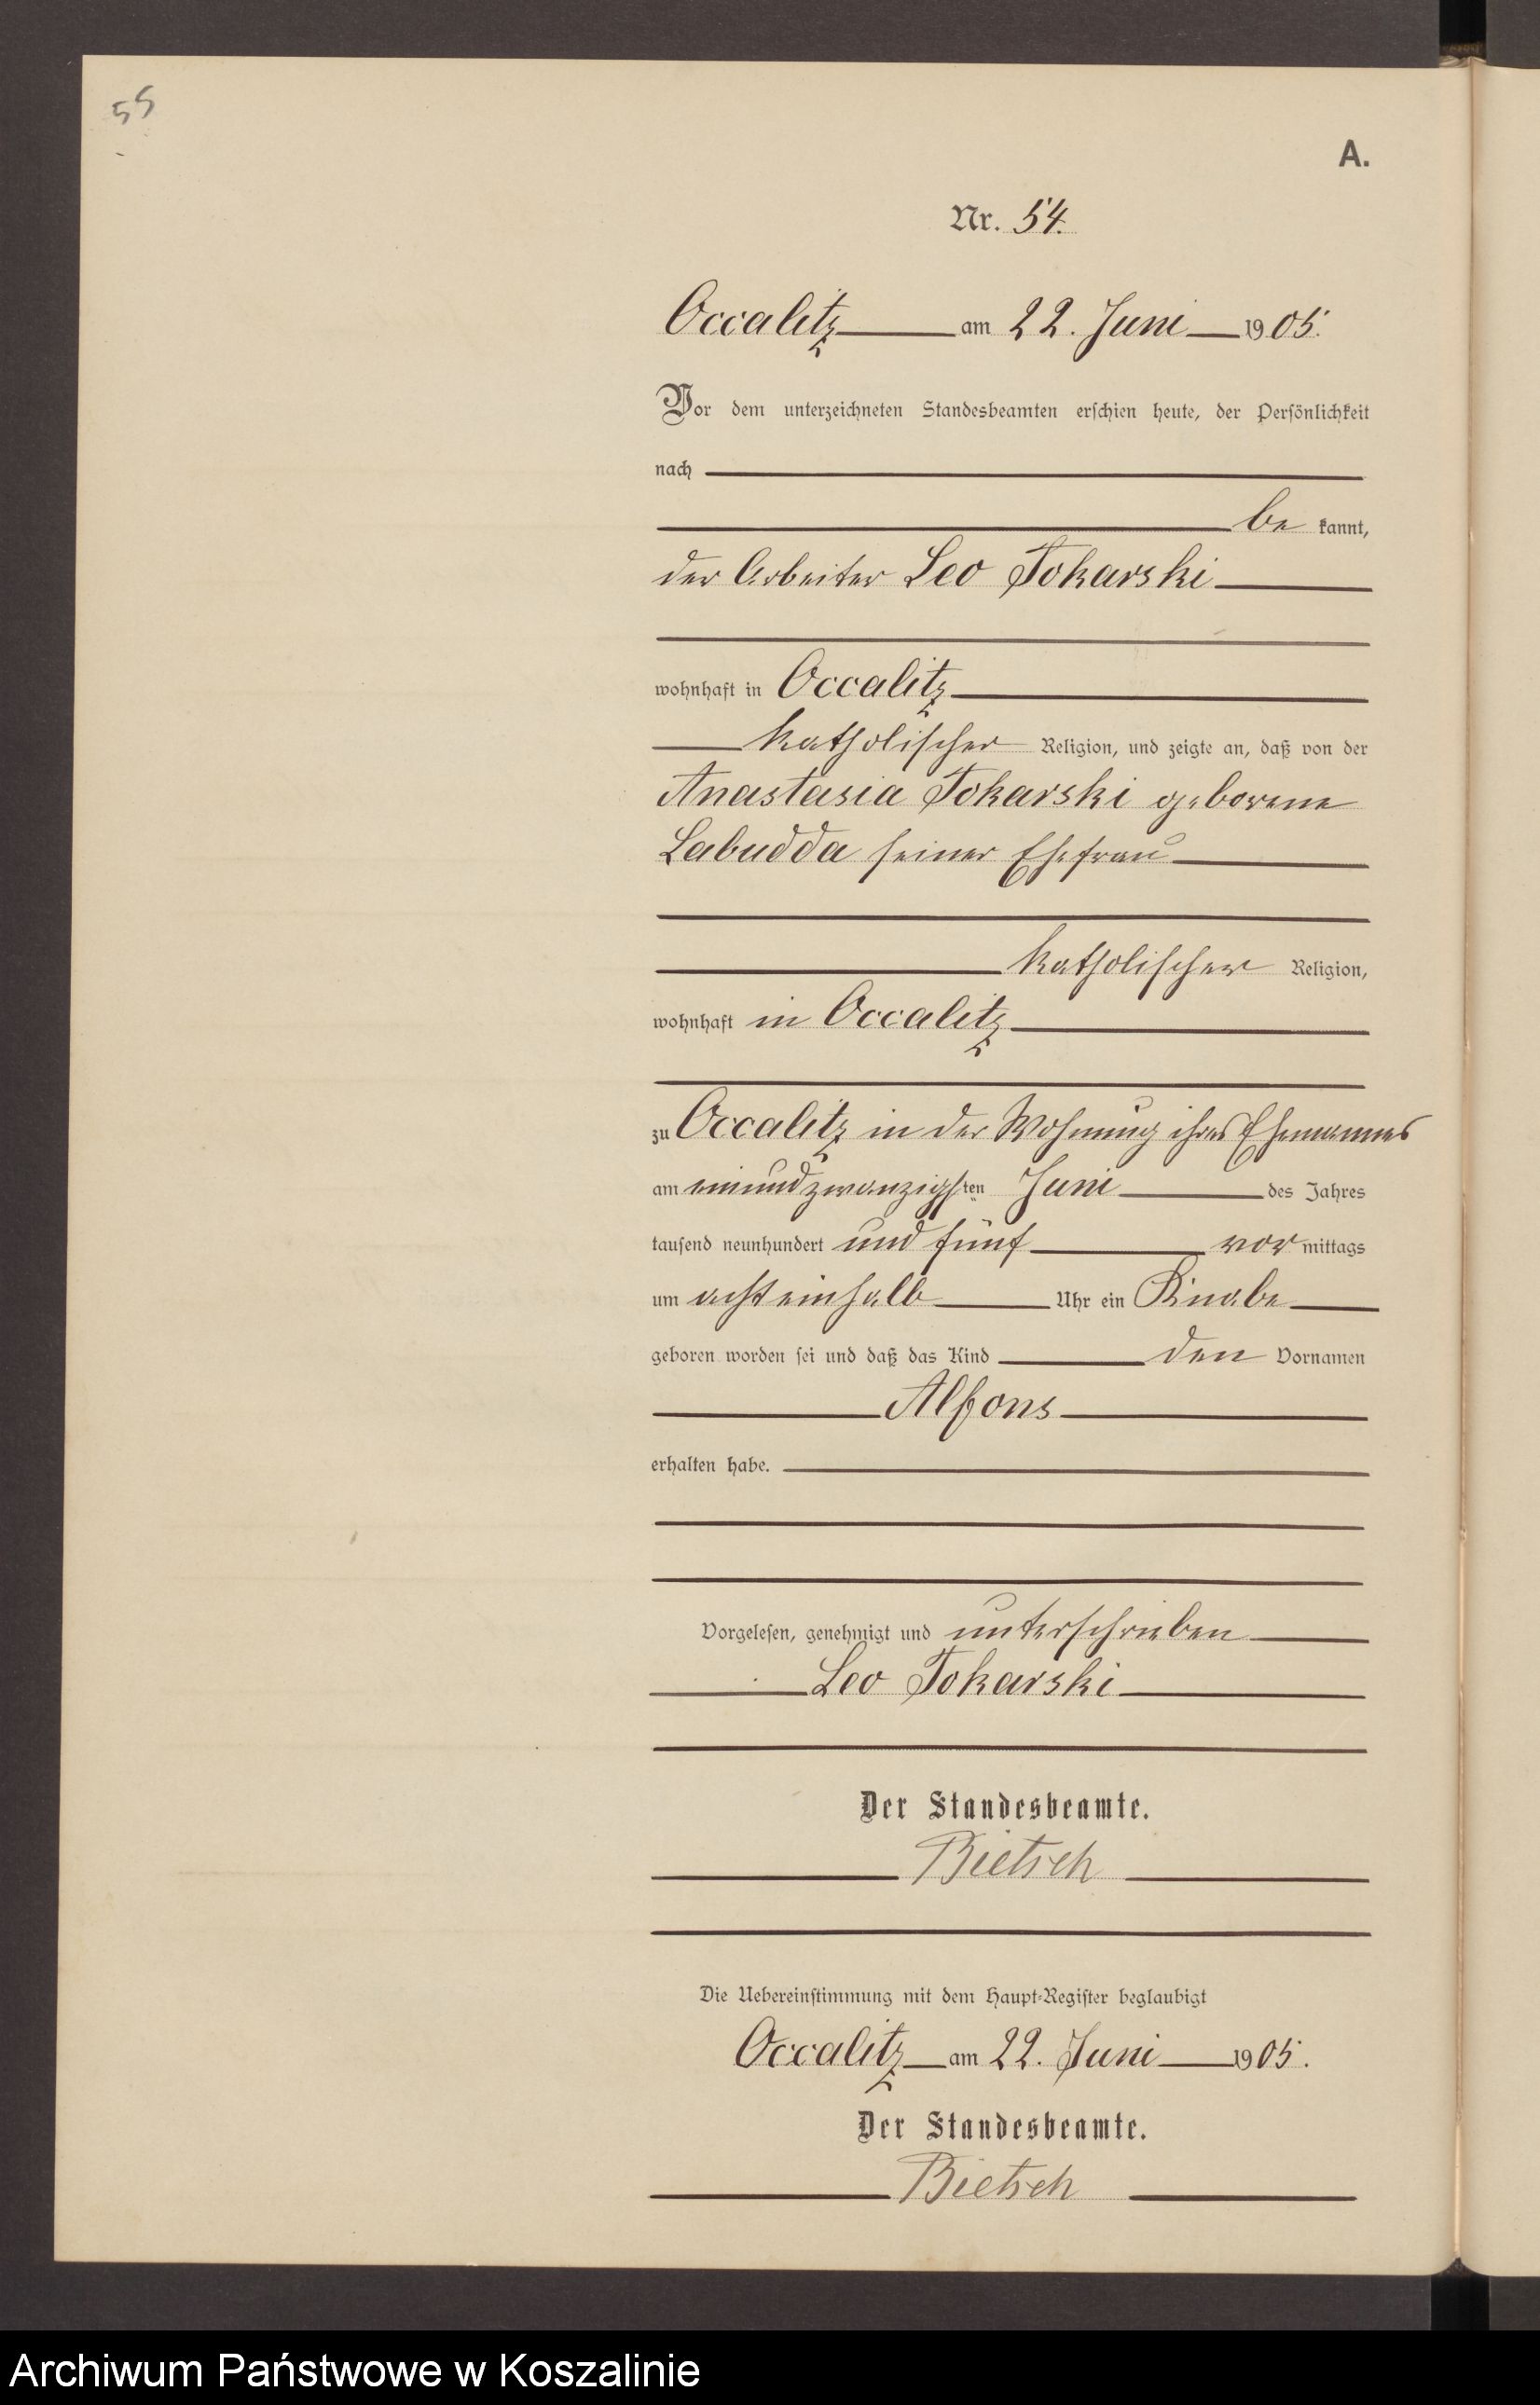 55
A.
Nr. 54.
Occalitz am 22. Juni 1905.
Vor dem unterzeichneten Standesbeamten erschien heute, der Persönlichkeit
nach
be kannt,
der Arbeiter Leo Tokarski
wohnhaft in Occalitz
katholischer Religion, und zeigte an, daß von der
Anastasia Tokarski geborene
Labudda seiner Ehefrau
katholischer Religion,
wohnhaft in Occalitz
zu Occalitz in der Wohnung ihres Ehemannes
am einundzwanzigsten Juni des Jahres
tausend neunhundert und fünf vor mittags
um acht einhalb Uhr ein Knabe
geboren worden sei und daß das Kind den Vornamen
Alfons
erhalten habe.
Vorgelesen, genehmigt und unterschrieben
Leo Tokarski
Der Standesbeamte.
Bietsch
Die Uebereinstimmung mit dem Haupt-Register beglaubigt
Occalitz am 22. Juni 1905.
Der Standesbeamte.
Bietsch
Archiwum Państwowe w Koszalinie